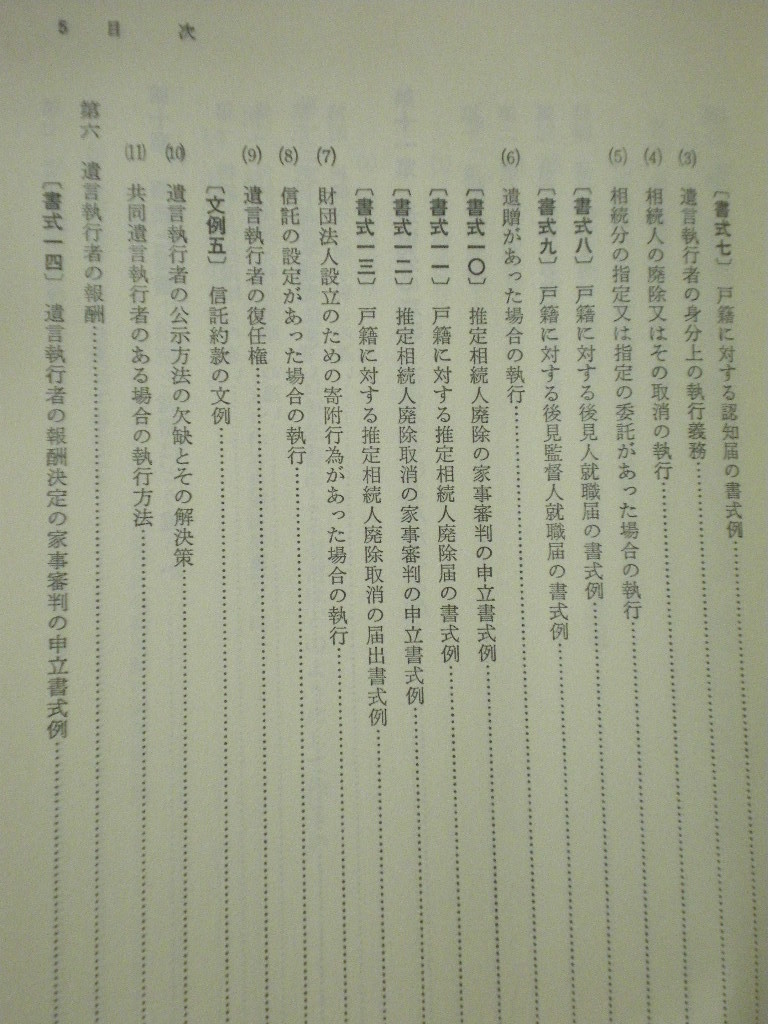 5 目 次
〔書式七〕 戸籍に対する認知届の書式例
(3) 遺言執行者の身分上の執行義務
(4) 相続人の廃除又はその取消の執行
(5) 相続分の指定又は指定の委託があった場合の執行
〔書式八〕 戸籍に対する後見人就職届の書式例
〔書式九〕 戸籍に対する後見監督人就職届の書式例
(6) 遺贈があった場合の執行
〔書式一〇〕 推定相続人廃除の家事審判の申立書式例
〔書式一一〕 戸籍に対する推定相続人廃除届の書式例
〔書式一二〕 推定相続人廃除取消の家事審判の申立書式例
〔書式一三〕 戸籍に対する推定相続人廃除取消の届出書式例
(7) 財団法人設立のための寄附行為があった場合の執行
(8) 信託の設定があった場合の執行
(9) 遺言執行者の復任権
〔文例五〕 信託約款の文例
(10) 遺言執行者の公示方法の欠缺とその解決策
(11) 共同遺言執行者のある場合の執行方法
第六 遺言執行者の報酬
〔書式一四〕 遺言執行者の報酬決定の家事審判の申立書式例